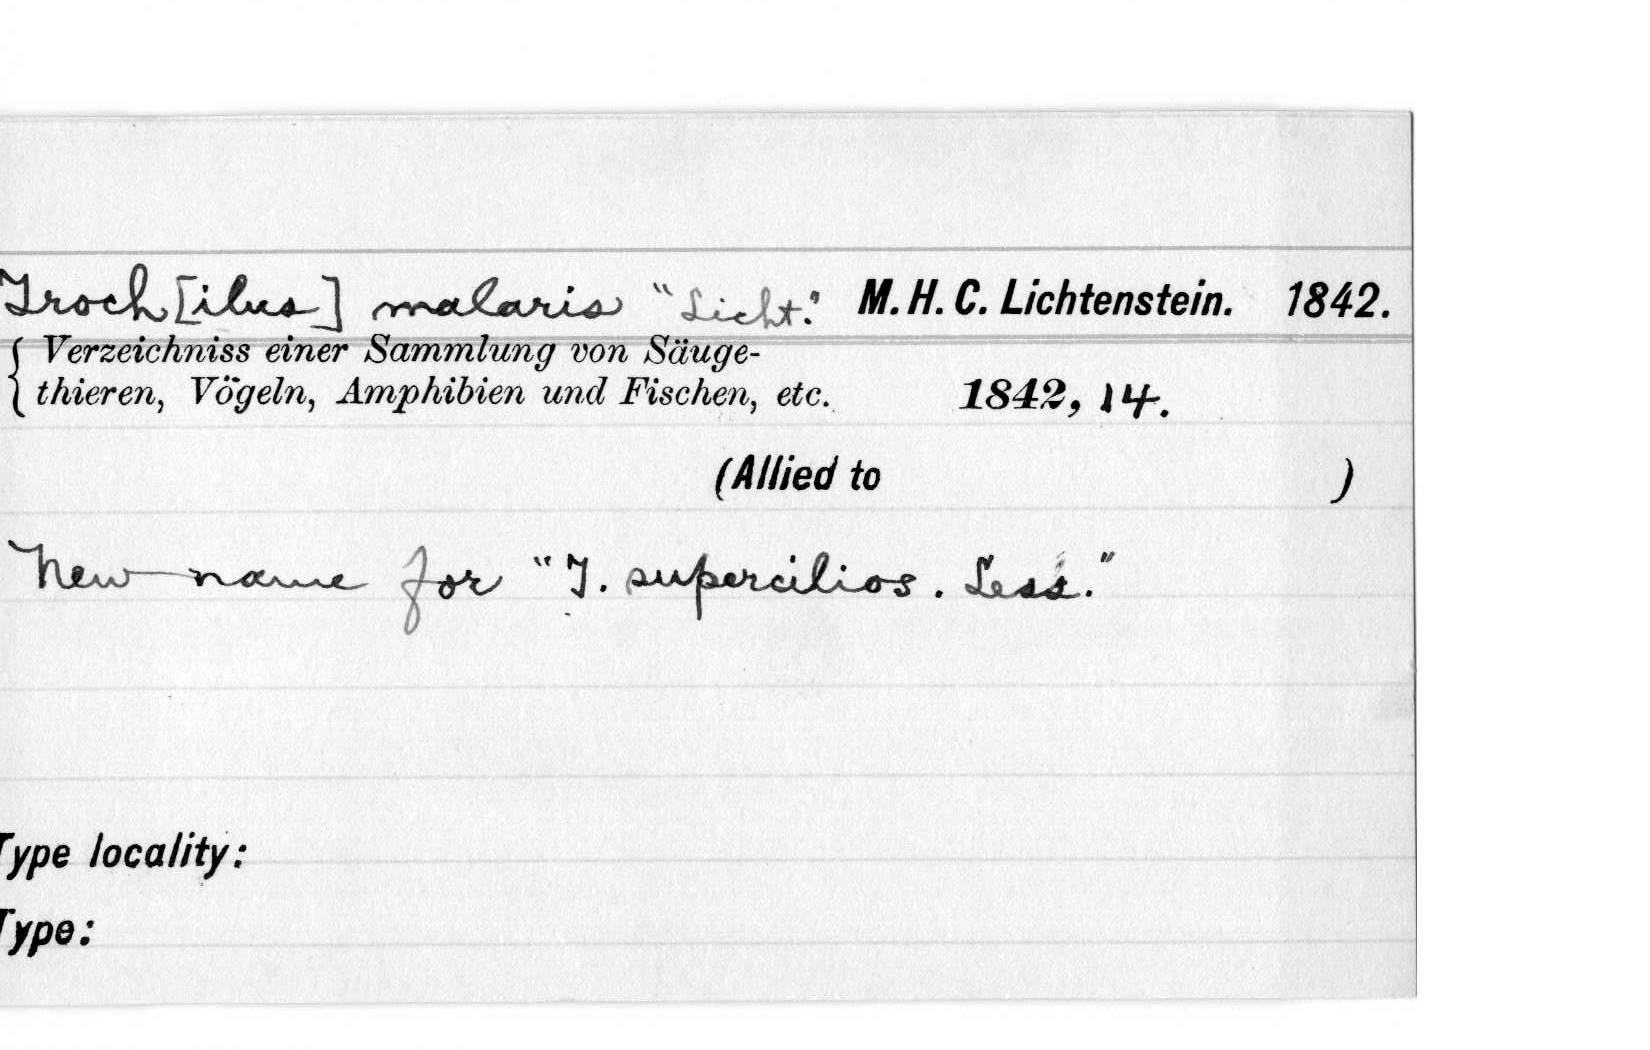 Troch[ilus] malaris "Licht." M. H. C. Lichtenstein. 1842.
Verzeichniss einer Sammlung von Säuge-
thieren, Vögeln, Amphibien und Fischen, etc. 1842, 14.
(Allied to )
New name for "T. supercilios. Less."
Type locality:
Type: